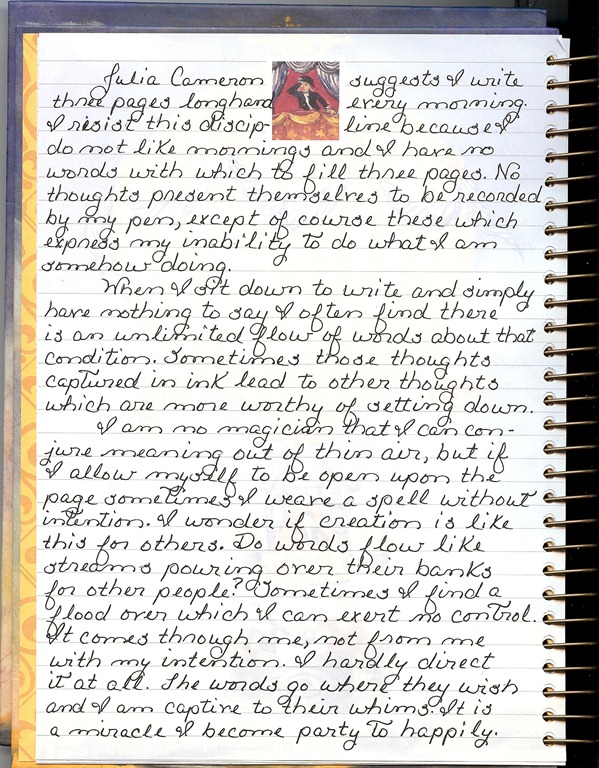 Julia Cameron suggests I write
three pages longhand every morning.
I resist this discip- line because I
do not like mornings and I have no
words with which to fill three pages. No
thoughts present themselves to be recorded
by my pen, except of course these which
express my inability to do what I am
somehow doing.
When I sit down to write and simply
have nothing to say I often find there
is an unlimited flow of words about that
condition. Sometimes those thoughts
captured in ink lead to other thoughts
which are more worthy of setting down.
I am no magician that I can con-
jure meaning out of thin air, but if
I allow myself to be open upon the
page sometimes I weave a spell without
intention. I wonder if creation is like
this for others. Do words flow like
streams pouring over their banks
for other people? Sometimes I find a
flood over which I can exert no control.
It comes through me, not from me
with my intention. I hardly direct
it at all. The words go where they wish
and I am captive to their whims. It is
a miracle I become party to happily.